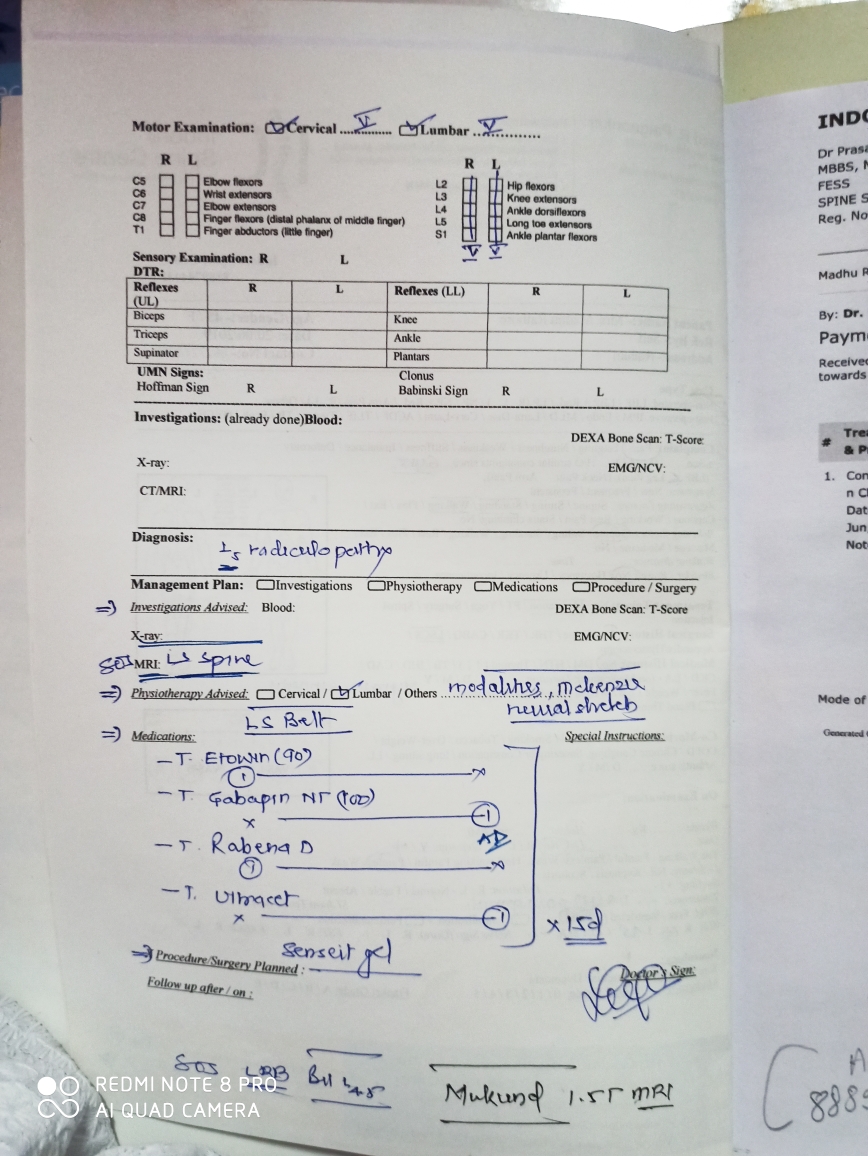 Motor Examination: Cervical .... V .... Lumbar .... V ....
R L
C5 Elbow flexors
C6 Wrist extensors
C7 Elbow extensors
C8 Finger flexors (distal phalanx of middle finger)
T1 Finger abductors (little finger)
R L
L2 Hip flexors
L3 Knee extensors
L4 Ankle dorsiflexors
L5 Long toe extensors
S1 Ankle plantar flexors
V V
Sensory Examination: R L
DTR:
Reflexes (UL) R L Reflexes (LL) R L
Biceps Knee
Triceps Ankle
Supinator Plantars
UMN Signs: Clonus
Hoffman Sign R L Babinski Sign R L
Investigations: (already done)Blood:
DEXA Bone Scan: T-Score:
X-ray: EMG/NCV:
CT/MRI:
Diagnosis:
L5 radiculopathy
Management Plan: Investigations Physiotherapy Medications Procedure / Surgery
Investigations Advised: Blood: DEXA Bone Scan: T-Score
X-ray: EMG/NCV:
SOS MRI: LS Spine
Physiotherapy Advised: Cervical / Lumbar / Others modalities, mckenzie
neural stretch
LS Belt
Medications: Special Instructions:
- T. Etowin (90)
1 x
- T. Gabapin NT (100)
x 1
- T. Rabena D
1 x
- T. Ultracet
x 1
x 15d
Procedure/Surgery Planned :
Senseit gel
Doctor's Sign:
Follow up after / on :
SOS
Mukund 1.5T MRI
REDMI NOTE 8 PRO
AI QUAD CAMERA
INDO
Dr Prasa
MBBS, M
FESS
SPINE S
Reg. No
Madhu R
By: Dr.
Paym
Received
towards
# Trea
& P
1. Con
n C
Dat
Jun
Not
Mode of
Generated
A
8889